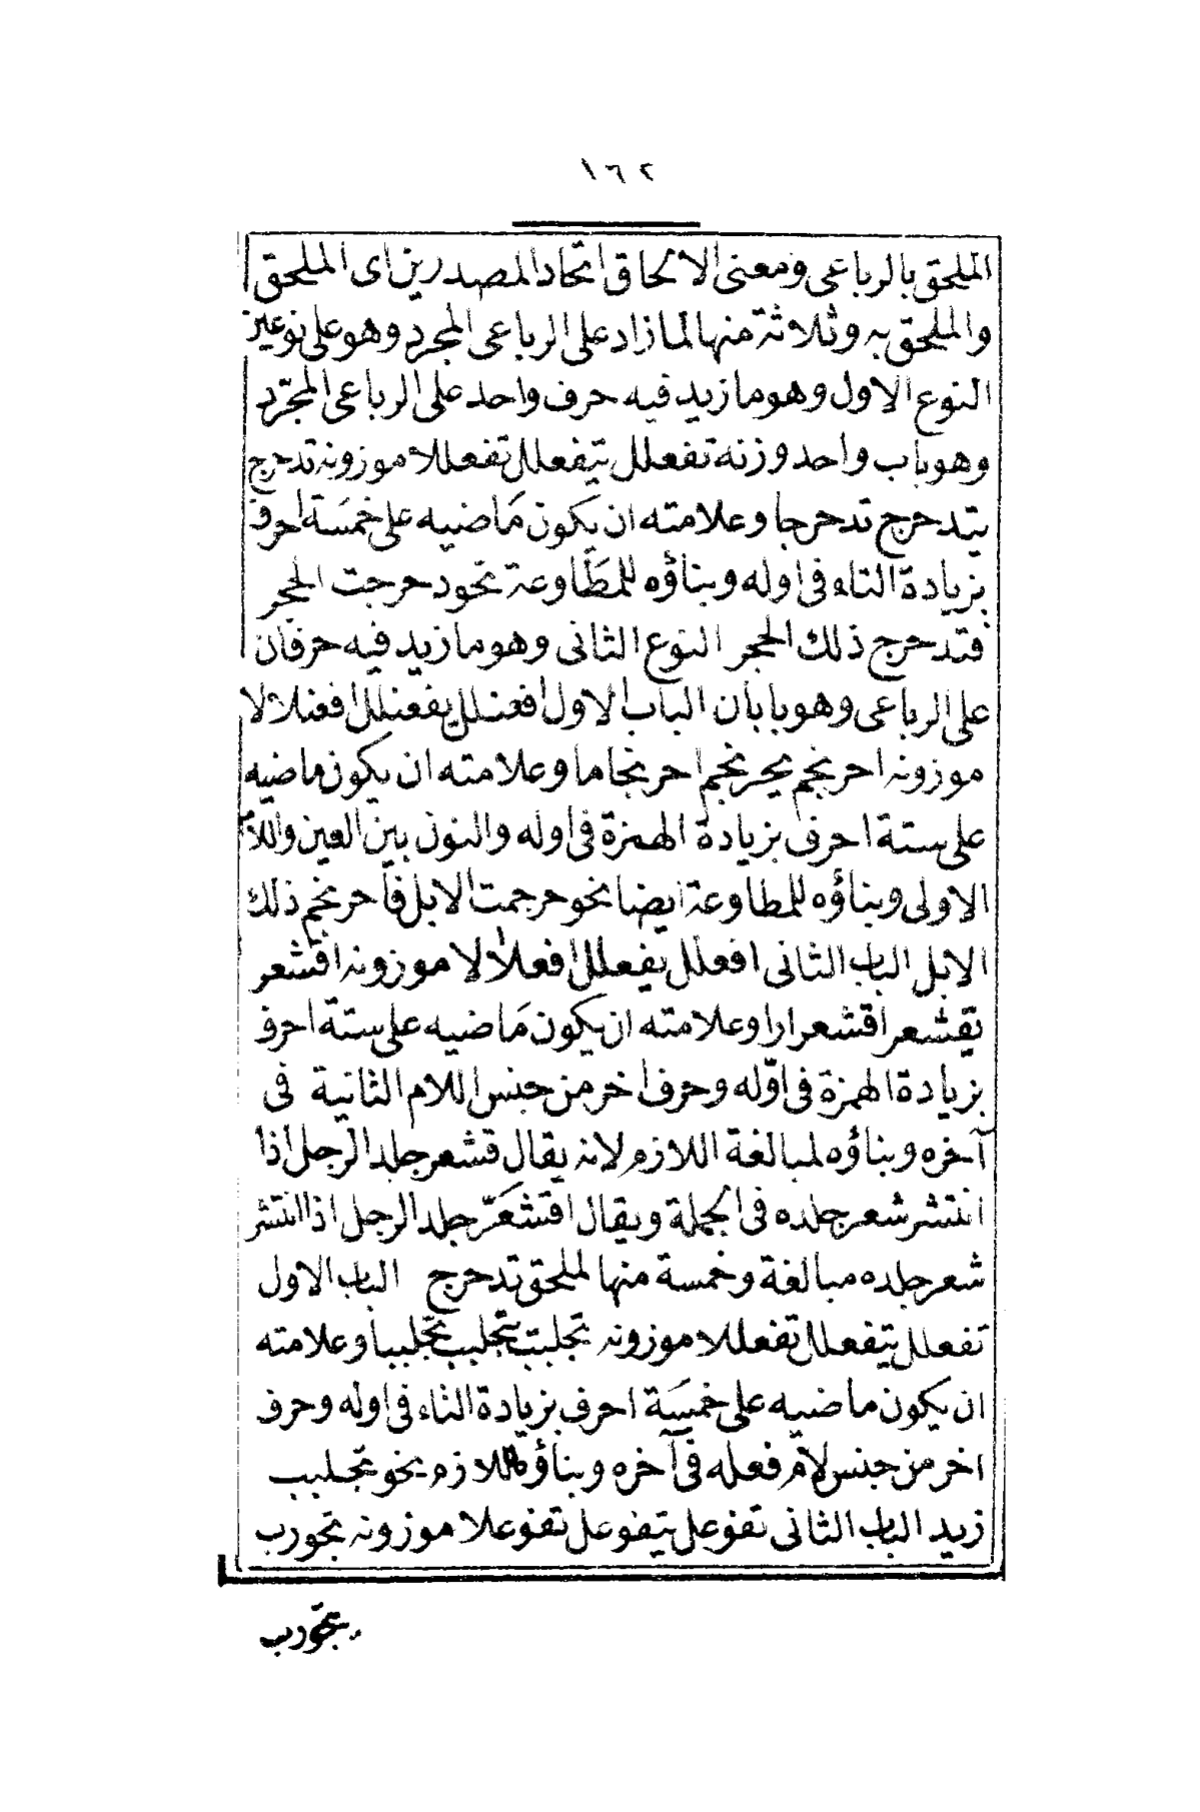 ١٦٢
الملحق بالرباعى ومعنى الالحاق اتحاد المصدرين اى الملحق
والملحق به وثلاثة منها لما زاد على الرباعى المجرد وهو على نوعين
النوع الاول وهو ما زيد فيه حرف واحد على الرباعى المجرّد
وهو باب واحد وزنه تفعلل يتفعلل تفعللا موزونه تدحرج
يتدحرج تدحرجا وعلامته ان يكون مَاضيه على خمسَة احرف
بزيادة التاء فى اوله وبناؤه للمطَاوعة نحو دحرجت الحجر
فتدحرج ذلك الحجر النوع الثانى وهو ما زيد فيه حرفان
على الرباعى وهو بابان الباب الاول افعنلل يفعنلل افعنلالا
موزونه احرنجم يحرنجم احرنجاما وعلامته ان يكون ماضيه
على ستة احرف بزيادة الهمزة فى اوله والنون بين العين واللام
الاولى وبناؤه للمطاوعة ايضا نحو حرجمت الابل فاحرنجم ذلك
الابل الباب الثانى افعلل يفعلل افعلالا موزونه اقشعر
يقشعر اقشعرارا وعلامته ان يكون مَاضيه على ستة احرف
بزيادة الهمزة فى اوّله وحرف اخر من جنس اللام الثانية فى
آخره وبناؤه لمبالغة اللازم لانه يقال قشعر جلد الرجل اذا
انتشر شعر جلده فى الجملة ويقال اقشَعَرّ جلد الرجل اذا انتشر
شعر جلده مبالغة وخمسة منها لملحق تدحرج الباب الاول
تفعلل يتفعلل تفعللا موزونه تجلبب يتجلبب تجلببا وعلامته
ان يكون ماضيه على خمسَة احرف بزيادة التاء فى اوله وحرف
اخر من جنس لام فعله فى آخره وبناؤه للازم نحو تجلبب
زيد الباب الثانى تفوعل يتفوعل تفوعلا موزونه تجورب
يتجورب